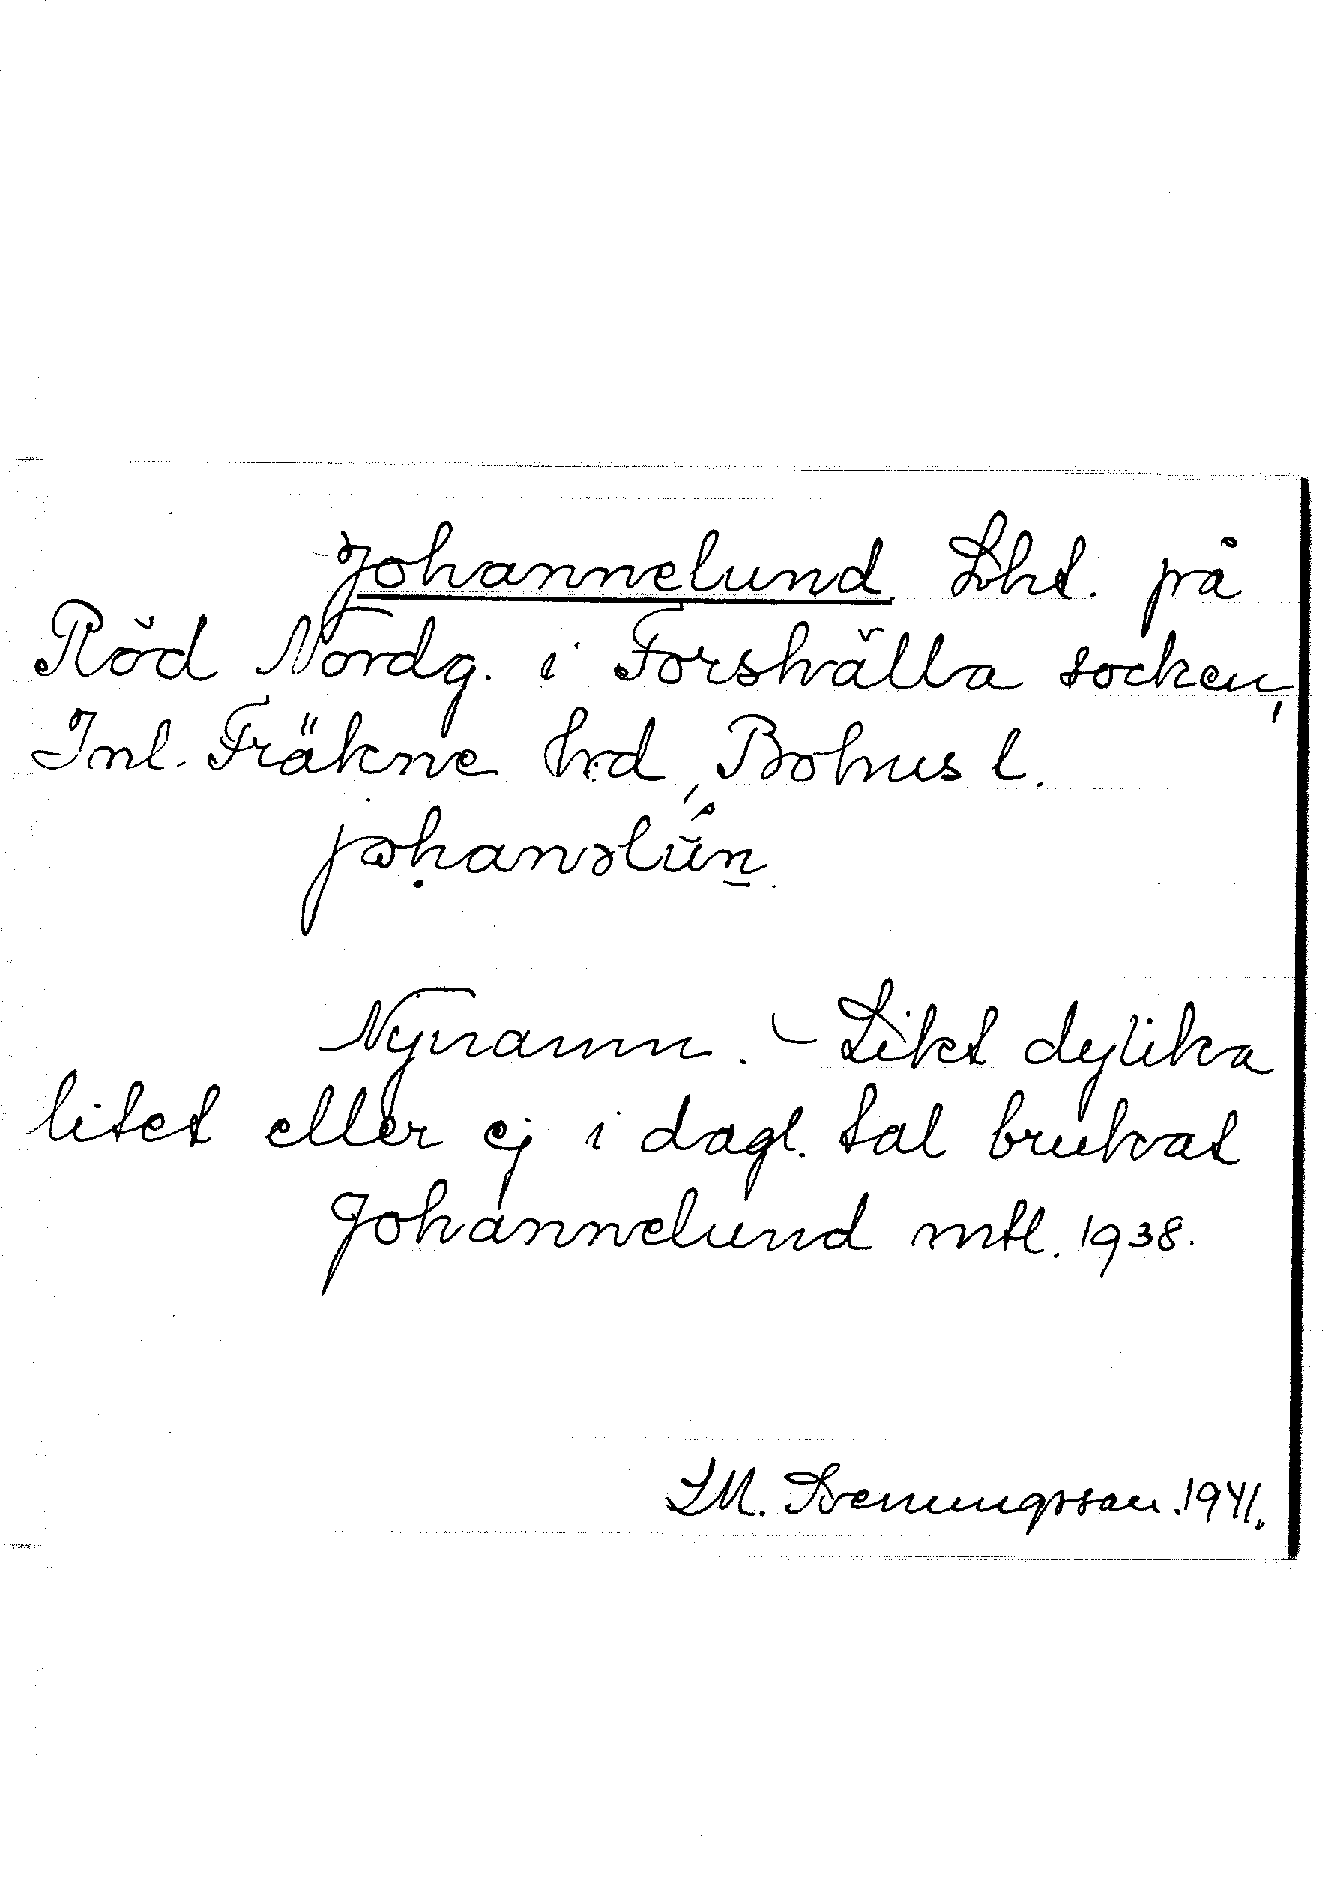 Johannelund Lht. på
Röd Nordg. i Forshälla socken,
Inl. Fräkne hd, Bohus l.
johanəlún
Nynamn. – Likt dylika
litet eller ej i dagl. tal brukat
Johannelund mtl. 1938.
S.M. Svenungsson. 1941.